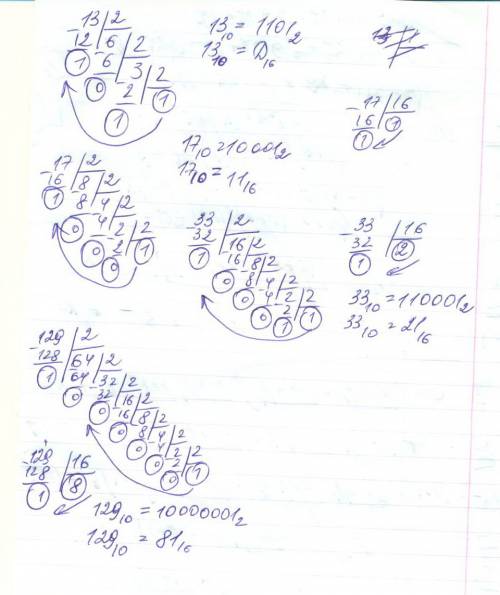 -13 | 2
12 | -6 | 2
1 | 6 | -3 | 2
0 | 2 | 1
1
13₁₀ = 1101₂
13₁₀ = D₁₆
-17 | 16
16 | 1
1
-17 | 2
16 | -8 | 2
1 | 8 | -4 | 2
0 | 4 | -2 | 2
0 | 2 | 1
0
17₁₀ = 10001₂
17₁₀ = 11₁₆
-33 | 2
32 | 16 | 2
1 | 16 | -8 | 2
0 | 8 | 4 | 2
0 | 4 | 2 | 2
0 | 2 | 1
1
-33 | 16
32 | 2
1
33₁₀ = 110001₂
33₁₀ = 21₁₆
-129 | 2
128 | 64 | 2
1 | 64 | -32 | 2
0 | 32 | 16 | 2
0 | 16 | 8 | 2
0 | 8 | 4 | 2
0 | 4 | 2 | 2
0 | 2 | 1
0
-129 | 16
128 | 8
1
129₁₀ = 10000001₂
129₁₀ = 81₁₆